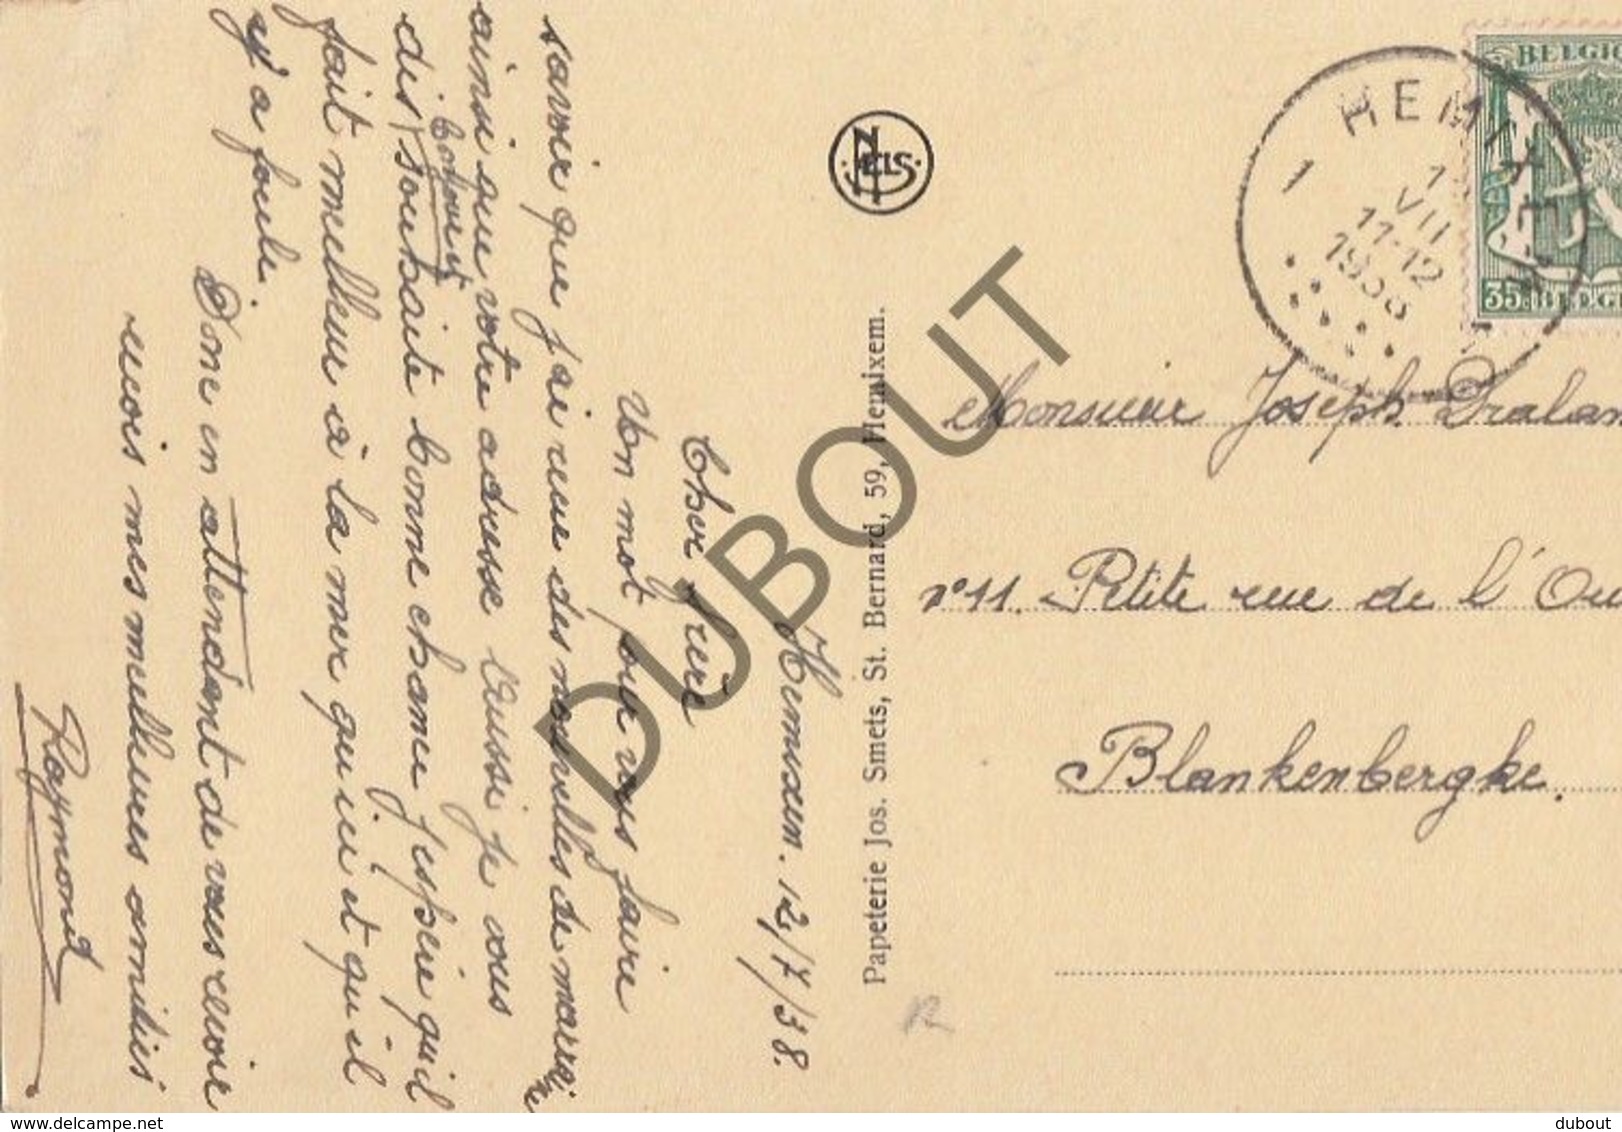 Hemixem. 12/7/38.
Cher frère
Un mot pour vous faire
savoir que j'ai reçu des nouvelles de marraine
ainsi que votre adresse Aussi je vous
dis souhaite bonne chance j'espère qu'il
bonjour et
fait meilleur à la mer qu'ici et qu'il
y a foule.
Donc en attendant de vous revoir
recois mes meilleures amitiés
Raymond
NELS
Papeterie Jos. Smets, St. Bernard, 59, Hemixem.
HEMIXEM
1
VII
11-12
1938
BELGIQ
35c BELGI
Monsieur Joseph
n° 11. Petite rue de l'Ou
Blankenberghe.
DUBOUT
www.delcampe.net
dubout